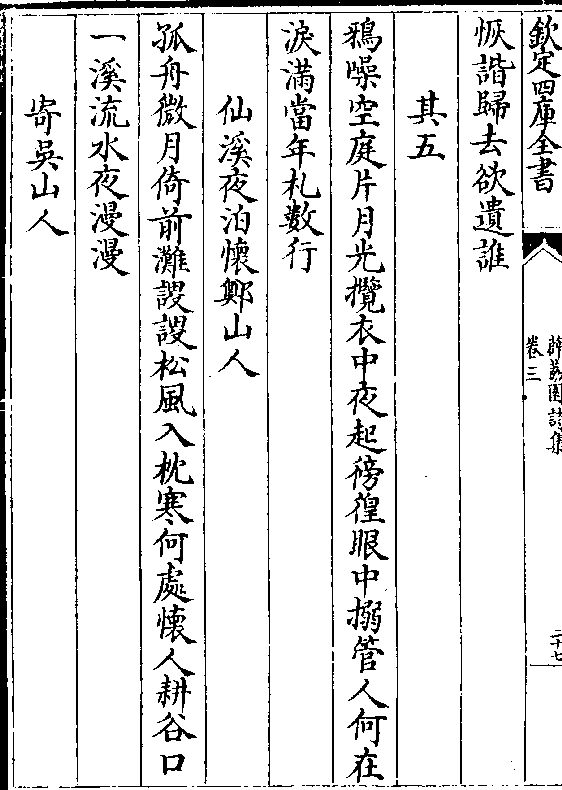 欽定四庫全書
恢諧歸去欲遺誰
其五
鴉噪空庭片月光攬衣中夜起徬徨眼中搦管人何在
淚滿當年札數行
仙溪夜泊懷鄭山人
孤舟微月倚前灘謖謖松風入枕寒何處懷人耕谷口
一溪流水夜漫漫
寄吳山人
薜荔園詩集
卷三
二十七